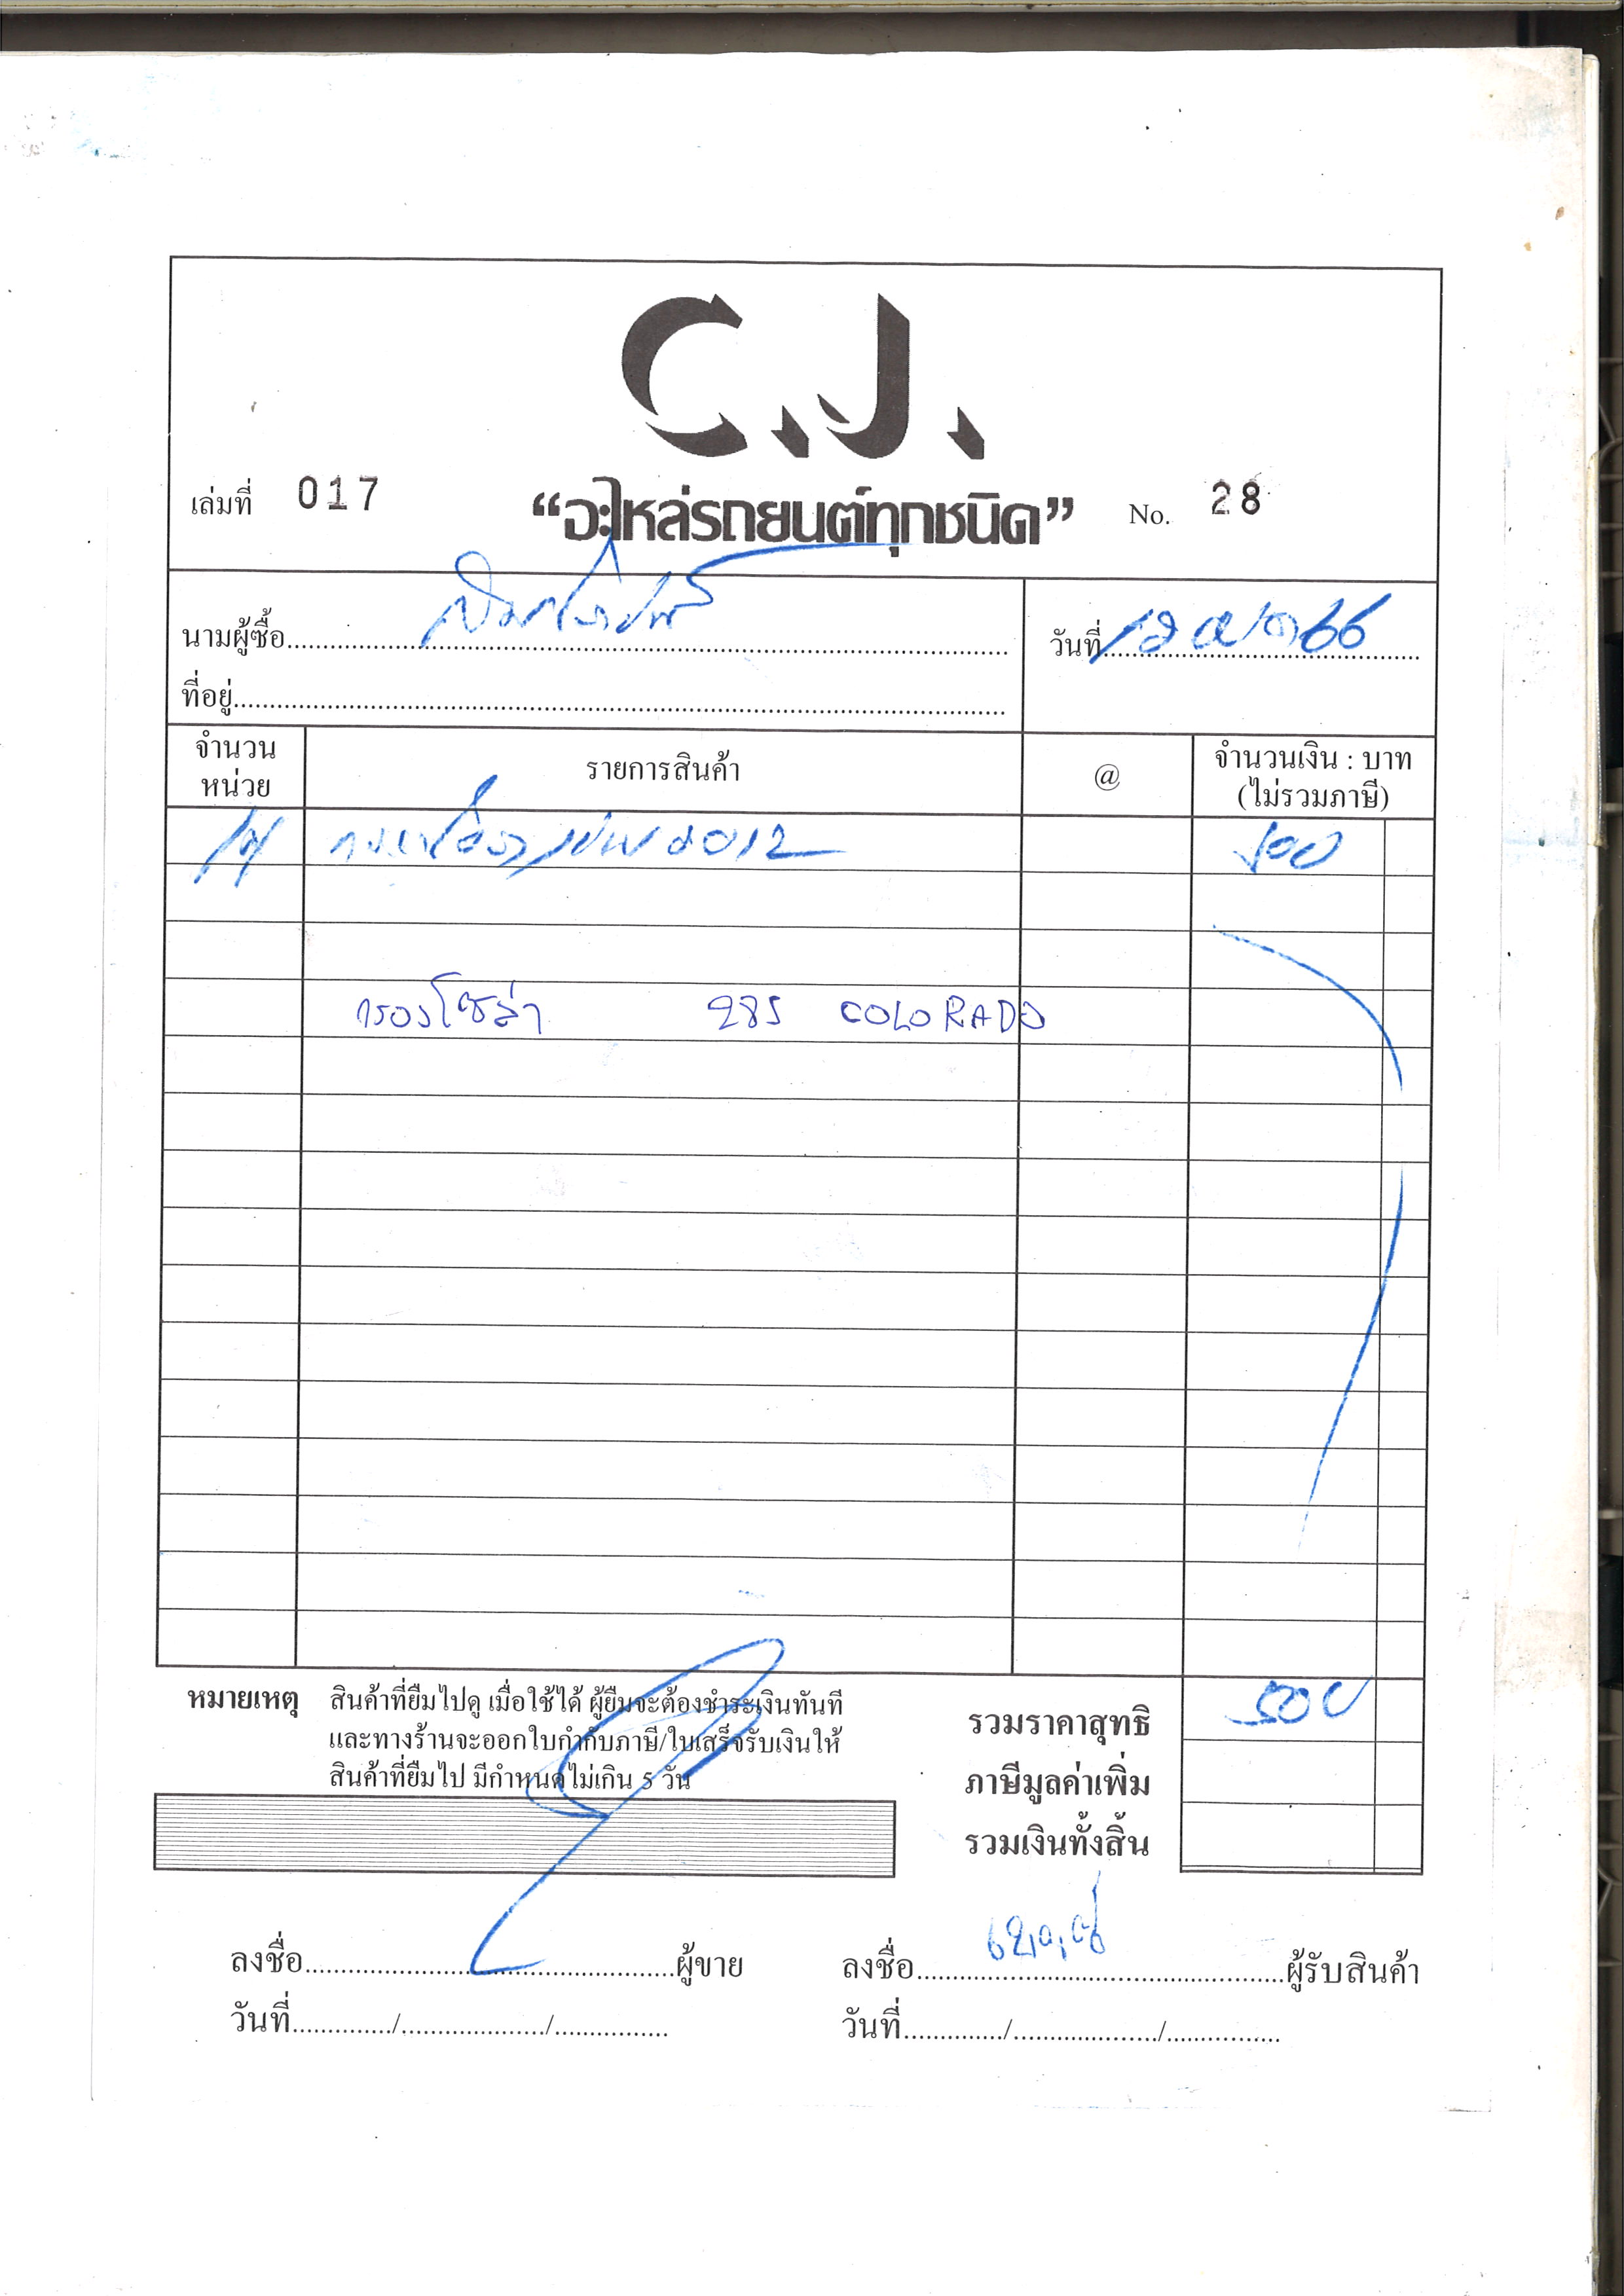 C.J.
เล่มที่ 017 “อะไหล่รถยนต์ทุกชนิด” No. 28
นามผู้ซื้อ
วันที่ 12 66
ที่อยู่
จำนวน หน่วย รายการสินค้า @ จำนวนเงิน : บาท (ไม่รวมภาษี)
2012 500
กรองโซล่า 285 COLORADO
หมายเหตุ สินค้าที่ยืมไปดู เมื่อใช้ได้ ผู้ยืมจะต้องชำระเงินทันที
และทางร้านจะออกใบกำกับภาษี/ใบเสร็จรับเงินให้
สินค้าที่ยืมไป มีกำหนดไม่เกิน 5 วัน
รวมราคาสุทธิ 500
ภาษีมูลค่าเพิ่ม
รวมเงินทั้งสิ้น
ลงชื่อ ผู้ขาย ลงชื่อ ผู้รับสินค้า
วันที่ / / วันที่ / /